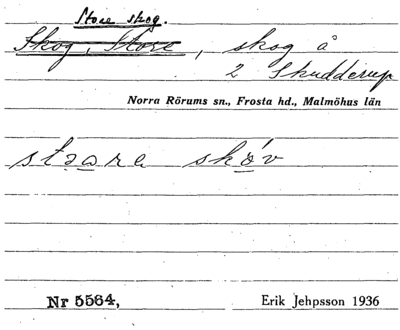 Store skog.
Skog, Store, skog å
2 Skudderup
Norra Rörums sn., Frosta hd., Malmöhus län
stoara skóv
Nr 5564,
Erik Jehpsson 1936